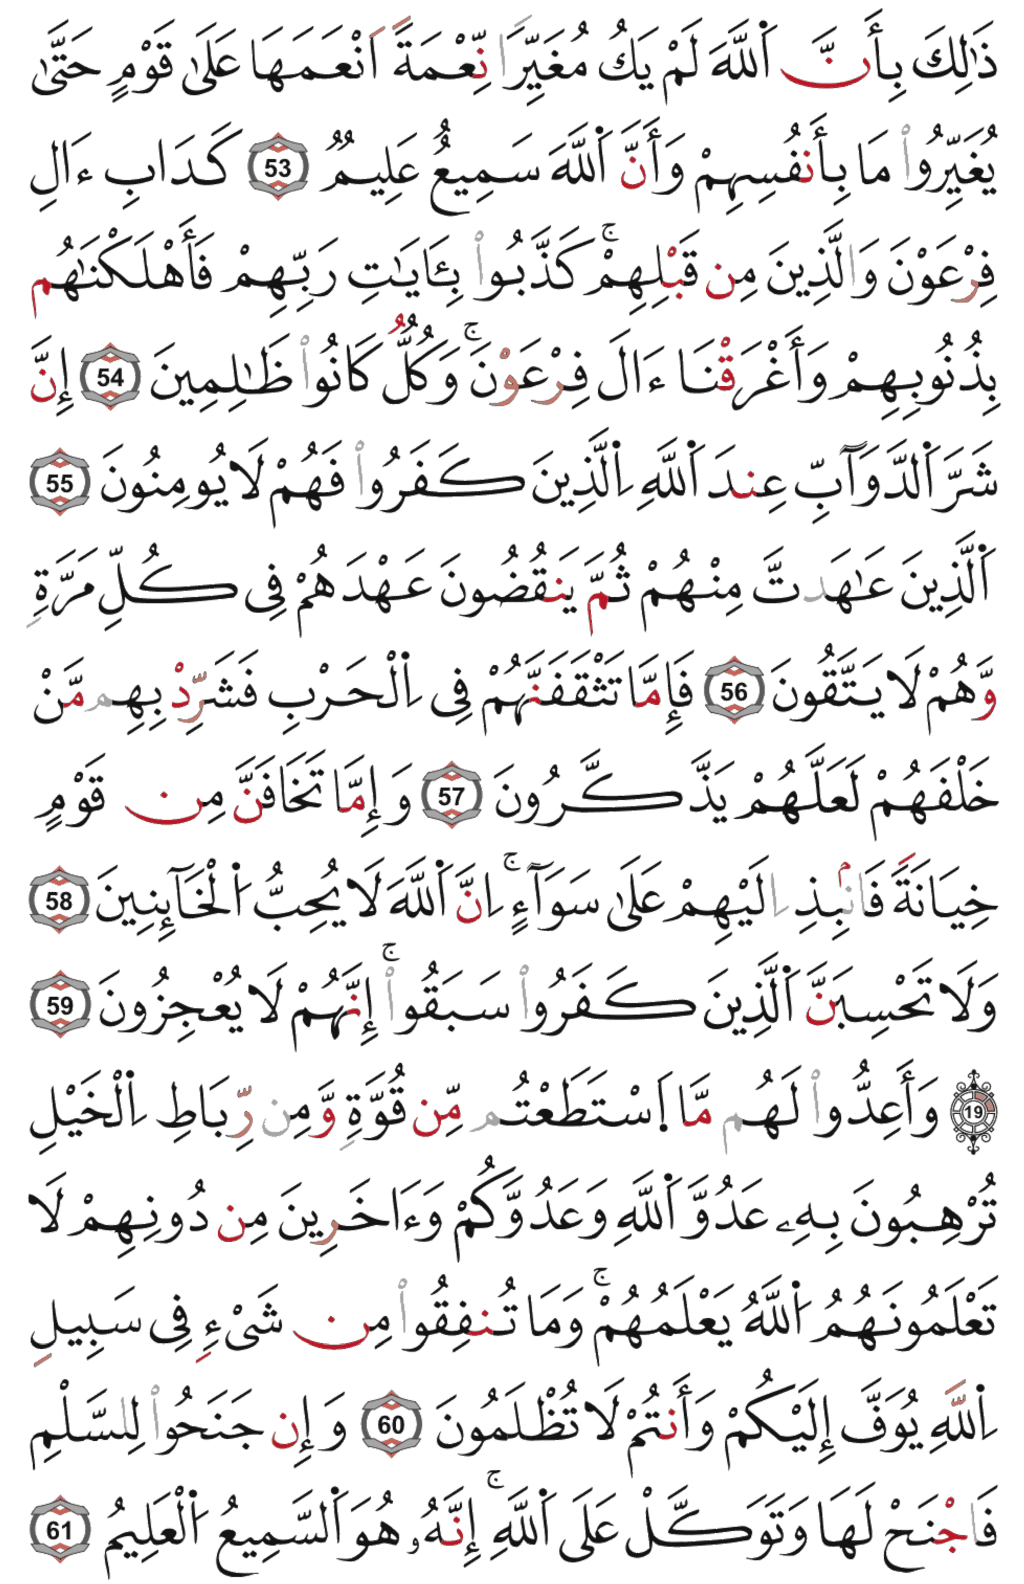 ذَٰلِكَ بِأَنَّ اَ۬للَّهَ لَمْ يَكُ مُغَيِّراٗ نِّعْمَةً اَنْعَمَهَا عَلَىٰ قَوْمٍ حَتَّىٰ
يُغَيِّرُواْ مَا بِأَنفُسِهِمْ وَأَنَّ اَ۬للَّهَ سَمِيعٌ عَلِيمٞ 53 كَدَابِ ءَالِ
فِرْعَوْنَ وَالَّذِينَ مِن قَبْلِهِمْۚ كَذَّبُواْ بِـَٔايَٰتِ رَبِّهِمْ فَأَهْلَكْنَٰهُم
بِذُنُوبِهِمْ وَأَغْرَقْنَا ءَالَ فِرْعَوْنَۚ وَكُلّٞ كَانُواْ ظَٰلِمِينَ 54 إِنَّ
شَرَّ اَ۬لدَّوَآبِّ عِندَ اَ۬للَّهِ اِ۬لَّذِينَ كَفَرُواْ فَهُمْ لَا يُومِنُونَ 55
اَ۬لَّذِينَ عَٰهَدتَّ مِنْهُمْ ثُمَّ يَنقُضُونَ عَهْدَهُمْ فِى كُلِّ مَرَّةٖ
وَّهُمْ لَا يَتَّقُونَ 56 فَإِمَّا تَثْقَفَنَّهُمْ فِى اِ۬لْحَرْبِ فَشَرِّدْ بِهِم مَّنْ
خَلْفَهُمْ لَعَلَّهُمْ يَذَّكَّرُونَ 57 وَإِمَّا تَخَافَنَّ مِن قَوْمٍ
خِيَانَةٗ فَانۢبِذِ اِلَيْهِمْ عَلَىٰ سَوَآءٍۚ اِنَّ اَ۬للَّهَ لَا يُحِبُّ اُ۬لْخَآئِنِينَ 58
وَلَا تَحْسِبَنَّ اَ۬لَّذِينَ كَفَرُواْ سَبَقُواْۚ إِنَّهُمْ لَا يُعْجِزُونَ 59
19 وَأَعِدُّواْ لَهُم مَّا اَ۪سْتَطَعْتُم مِّن قُوَّةٖ وَمِن رِّبَاطِ اِ۬لْخَيْلِ
تُرْهِبُونَ بِهِۦ عَدُوَّ اَ۬للَّهِ وَعَدُوَّكُمْ وَءَاخَرِينَ مِن دُونِهِمْ لَا
تَعْلَمُونَهُمُ اُ۬للَّهُ يَعْلَمُهُمْۚ وَمَا تُنفِقُواْ مِن شَىْءٖ فِى سَبِيلِ
اِ۬للَّهِ يُوَفَّ إِلَيْكُمْ وَأَنتُمْ لَا تُظْلَمُونَ 60 وَإِن جَنَحُواْ لِلسَّلْمِ
فَاجْنَحْ لَهَا وَتَوَكَّلْ عَلَى اَ۬للَّهِۚ إِنَّهُۥ هُوَ اَ۬لسَّمِيعُ اُ۬لْعَلِيمُ 61